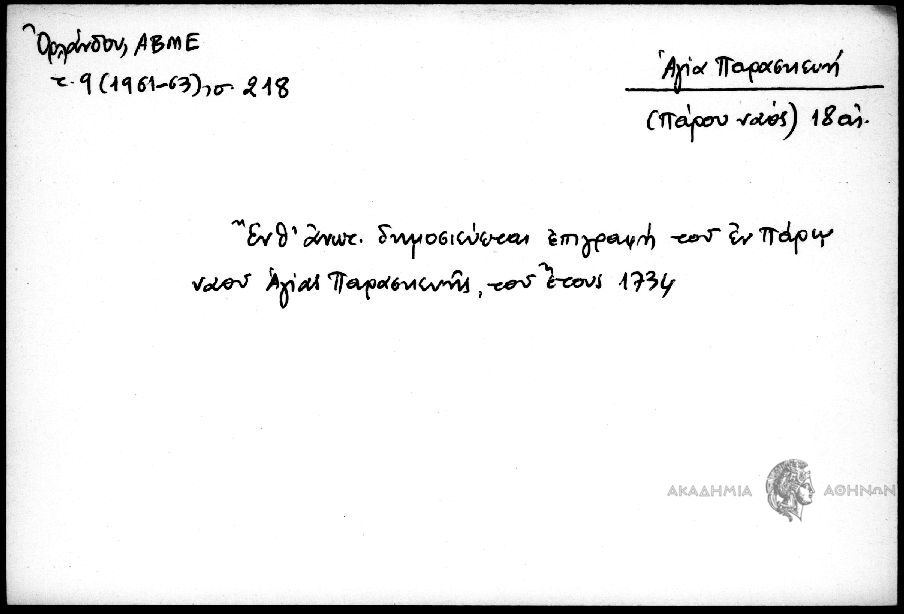 Ὀρλάνδου, ΑΒΜΕ
τ. 9 (1961-63), σ. 218
Ἁγία Παρασκευή
(Πάρου ναός) 18 αἰ.
Ἔνθ' ἄνωτ. δημοσιεύεται ἐπιγραφή τοῦ ἐν Πάρῳ
ναοῦ Ἁγίας Παρασκευῆς, τοῦ ἔτους 1734
ΑΚΑΔΗΜΙΑ ΑΘΗΝΩΝ